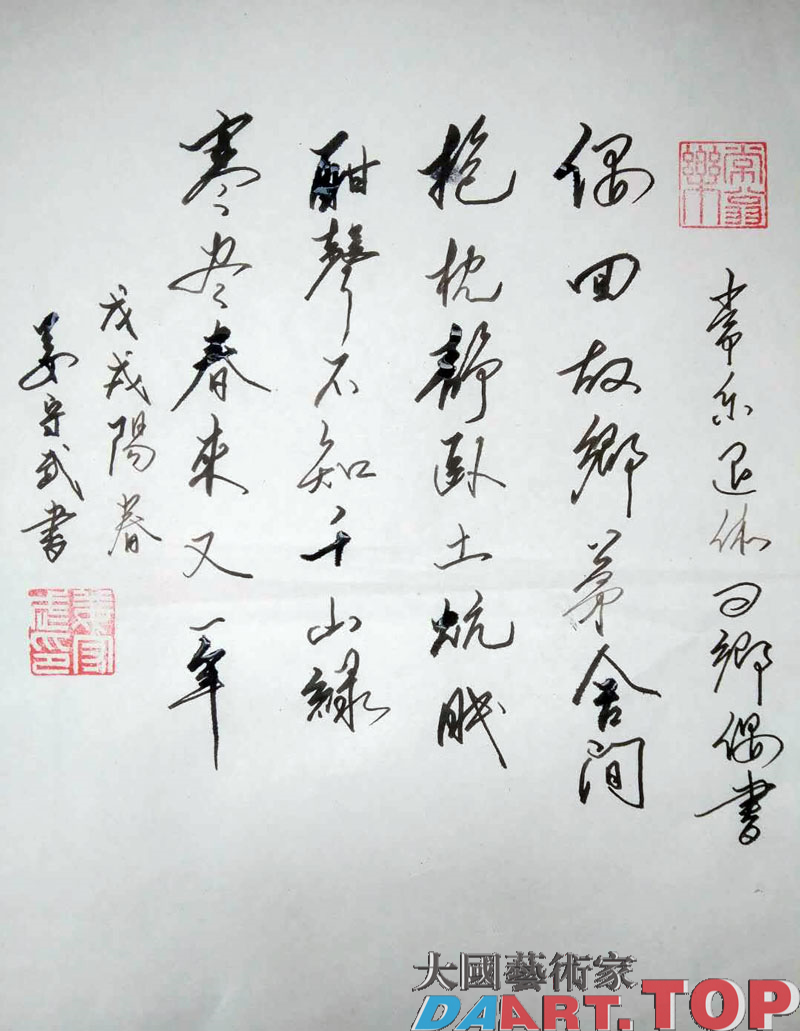 常乐退休回鄉偶書
偶回故鄉茅舍间
抱枕靜卧土炕眠
酣聲不知千山綠
寒尽春來又一年
戊戌陽春
姜守武書
大國藝術家
DAART.TOP